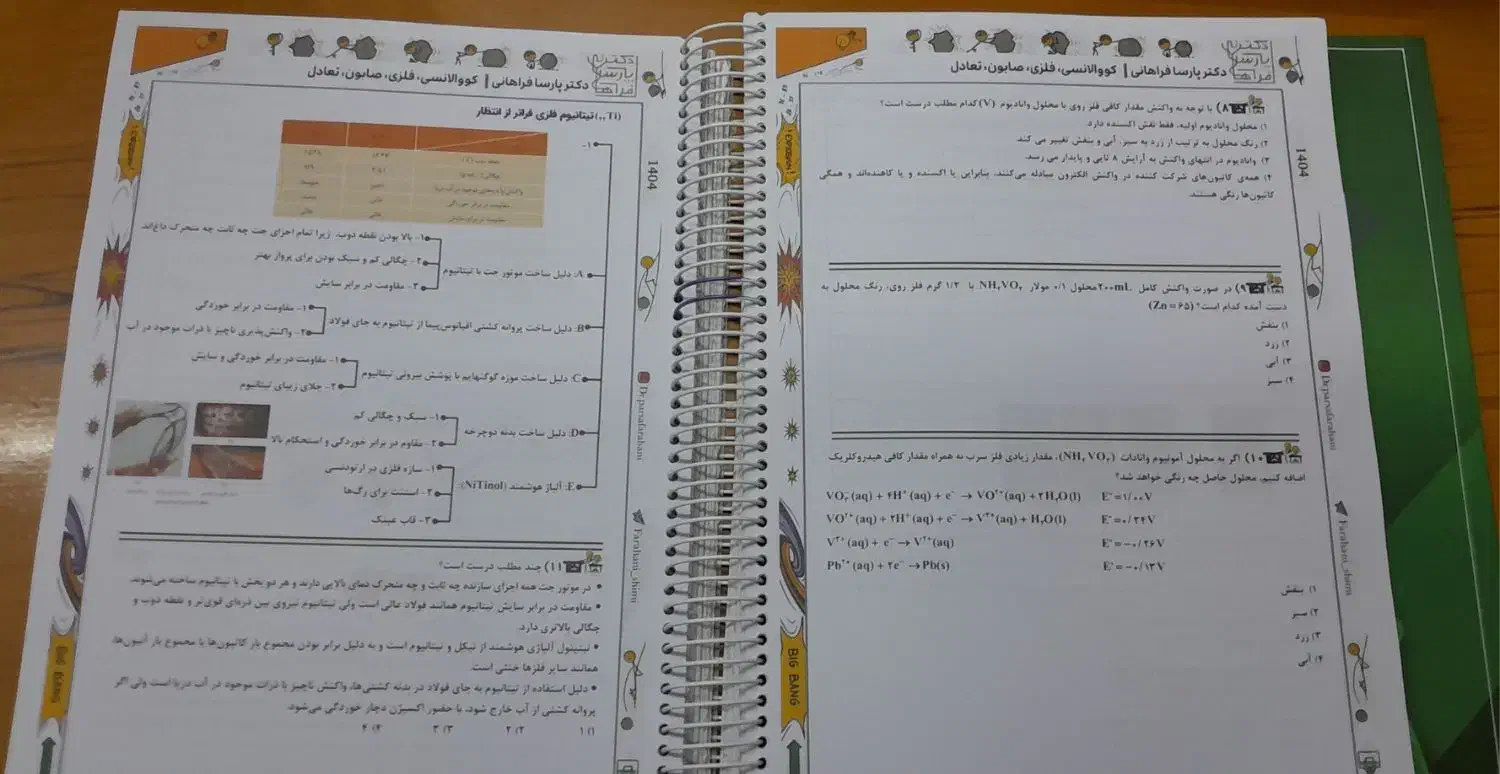 دکتر پارسا فراهانی | کووالانسی، فلزی، صابون، تعادل
۸) با توجه به واکنش مقدار کافی فلز روی با محلول وانادیوم (V) کدام مطلب درست است؟
۱) محلول وانادیوم اولیه، فقط نقش اکسنده دارد.
۲) رنگ محلول به ترتیب از زرد به سبز، آبی و بنفش تغییر می کند
۳) وانادیوم در انتهای واکنش به آرایش ۸ تایی و پایدار می رسد.
۴) همه‌ی کاتیون‌های شرکت کننده در واکنش الکترون مبادله می‌کنند، بنابراین یا اکسنده و یا کاهنده‌اند و همگی
کاتیون‌ها رنگی هستند.
۹) در صورت واکنش کامل ۲۰۰mL محلول ۰/۱ مولار NH₄VO₃ با ۱/۳ گرم فلز روی، رنگ محلول به
دست آمده کدام است؟ (Zn = ۶۵)
۱) بنفش
۲) زرد
۳) آبی
۴) سبز
۱۰) اگر به محلول آمونیوم وانادات (NH₄VO₃)، مقدار زیادی فلز سرب به همراه مقدار کافی هیدروکلریک
اضافه کنیم، محلول حاصل چه رنگی خواهد شد؟
VO₃⁻(aq) + ۴H⁺(aq) + e⁻ → VO²⁺(aq) + ۲H₂O(l) E°=۱/۰۰V
VO²⁺(aq) + ۲H⁺(aq) + e⁻ → V³⁺(aq) + H₂O(l) E°=۰/۳۴V
V³⁺(aq) + e⁻ → V²⁺(aq) E°=-۰/۲۶V
Pb²⁺(aq) + ۲e⁻ → Pb(s) E°=-۰/۱۳V
۱) بنفش
۲) سبز
۳) زرد
۴) آبی
1404
Dr.parsafarahani
Farahani_shimi
BIG BANG
دکتر پارسا فراهانی | کووالانسی، فلزی، صابون، تعادل
(₂₂Ti) تیتانیوم فلزی فراتر از انتظار
۱-
نقطه ذوب
A: دلیل ساخت موتور جت با تیتانیوم
۱- بالا بودن نقطه ذوب، زیرا تمام اجزای جت چه ثابت چه متحرک داغ‌اند
۲- چگالی کم و سبک بودن برای پرواز بهتر
۳- مقاومت در برابر سایش
B: دلیل ساخت پروانه کشتی اقیانوس‌پیما از تیتانیوم به جای فولاد
۱- مقاومت در برابر خوردگی
۲- واکنش‌پذیری ناچیز با ذرات موجود در آب
C: دلیل ساخت موزه گوگنهایم با پوشش بیرونی تیتانیوم
۱- مقاومت در برابر خوردگی و سایش
۲- جلای زیبای تیتانیوم
D: دلیل ساخت بدنه دوچرخه
۱- سبک و چگالی کم
۲- مقاوم در برابر خوردگی و استحکام بالا
E: آلیاژ هوشمند (NiTinol):
۱- سازه فلزی در ارتودنسی
۲- استنت برای رگ‌ها
۳- قاب عینک
۱۱) چند مطلب درست است؟
• در موتور جت همه اجزای سازنده چه ثابت و چه متحرک دمای بالایی دارند و هر دو بخش با تیتانیوم ساخته می‌شوند.
• مقاومت در برابر سایش تیتانیوم همانند فولاد عالی است ولی تیتانیوم نیروی بین ذره‌ای قوی‌تر و نقطه ذوب و
چگالی بالاتری دارد.
• نیتینول آلیاژی هوشمند از نیکل و تیتانیوم است و به دلیل برابر بودن مجموع بار کاتیون‌ها با مجموع بار آنیون‌ها،
همانند سایر فلزها خنثی است.
• دلیل استفاده از تیتانیوم به جای فولاد در بدنه کشتی‌ها، واکنش ناچیز با ذرات موجود در آب دریا است ولی اگر
پروانه کشتی از آب خارج شود، با حضور اکسیژن دچار خوردگی می‌شود.
۱) ۱ ۲) ۲ ۳) ۳ ۴) ۴
1404
Dr.parsafarahani
Farahani_shimi
BIG BANG